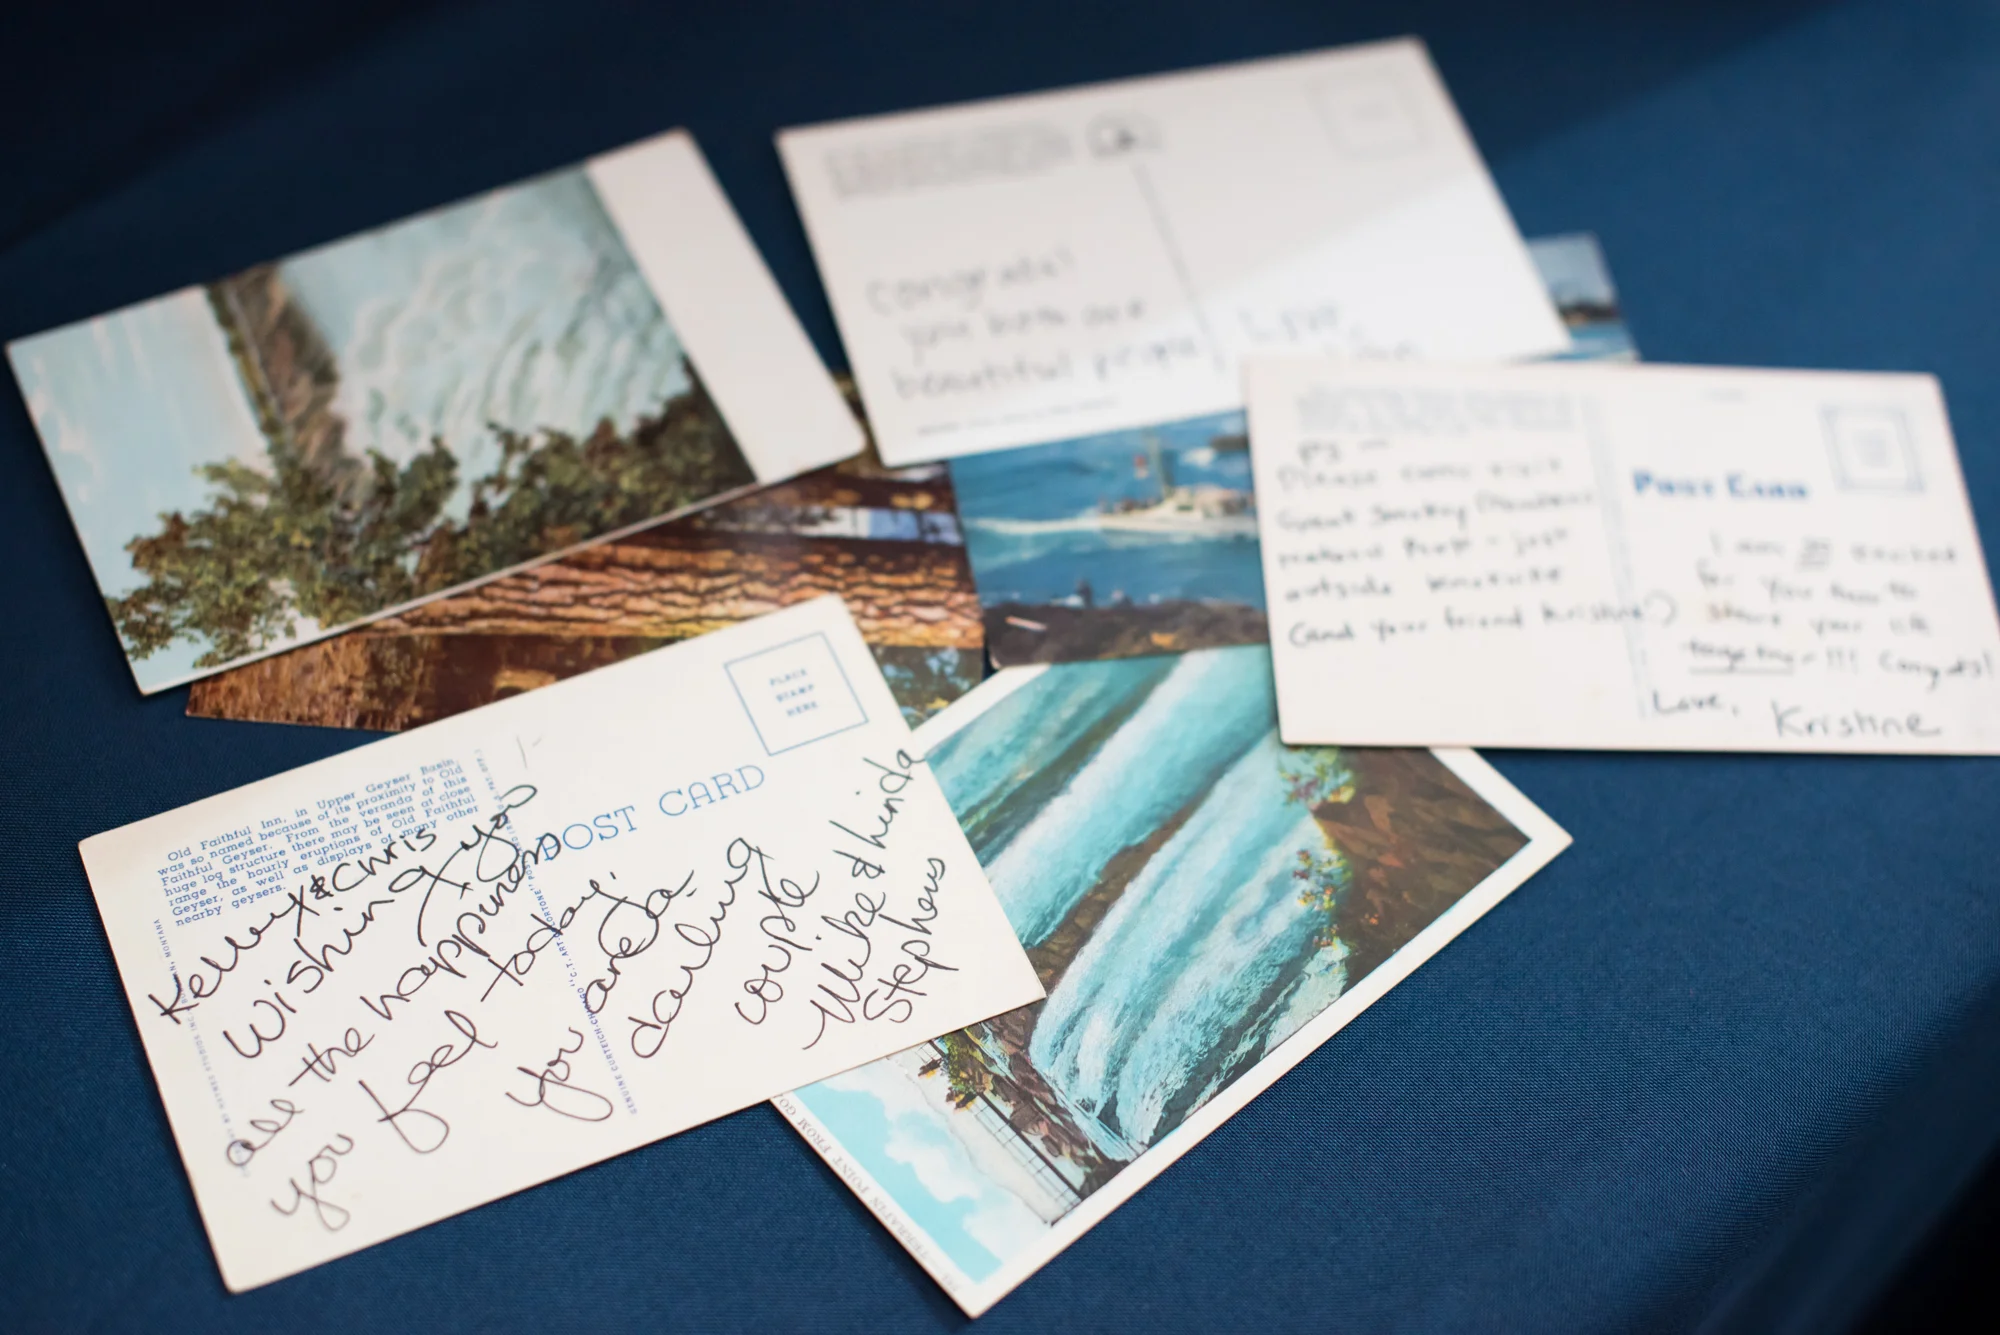 Congrats!
you both are
beautiful people
Love,
PS —
Please come visit
Great Smoky Mountain
National Park - just
outside Knoxville
(and your friend Kristine!)
POST CARD
I am so excited
for you two to
share your life
together!!! Congrats!
Love,
Kristine
PLACE
STAMP
HERE
Old Faithful Inn, in Upper Geyser Basin,
was so named because of its proximity to Old
Faithful Geyser. From the veranda of this
huge log structure there may be seen at close
range the hourly eruptions of Old Faithful
Geyser, as well as displays of many other
nearby geysers.
POST CARD
Kelly & Chris
Wishing you
all the happiness
you feel today.
You are a
darling
couple
Mike & Linda
Stephens
TERRAPIN POINT FROM GO